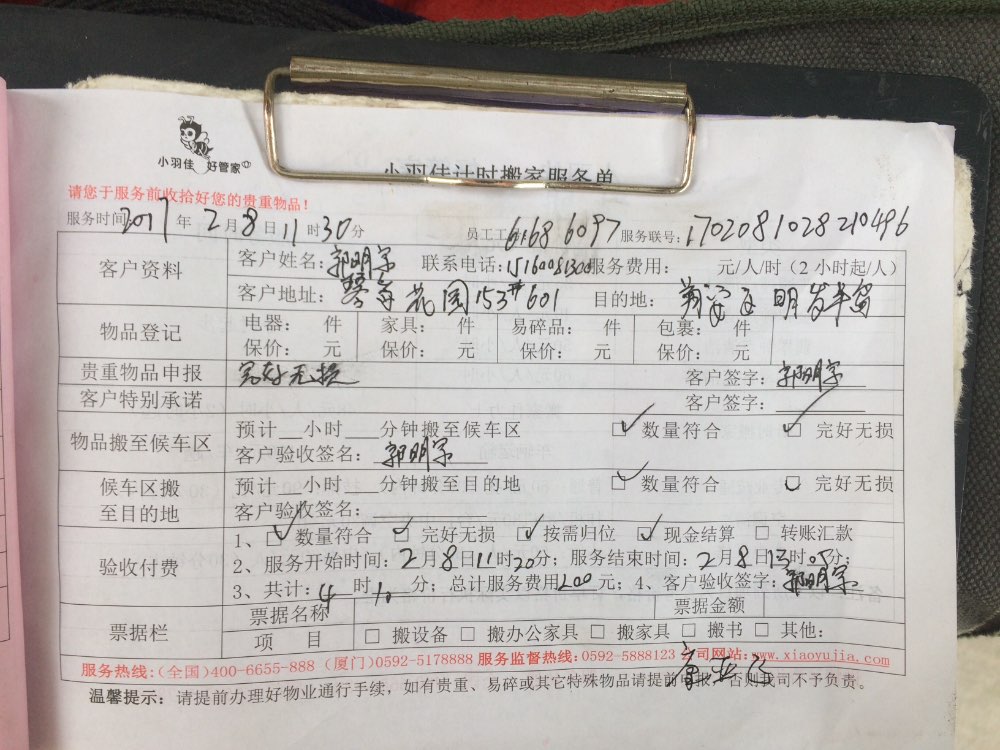 小羽佳 好管家
小羽佳计时搬家服务单
请您于服务前收拾好您的贵重物品!
服务时间 2017 年 2 月 8 日 11 时 30 分 员工工 6168 6097 服务联号: 170208 1028 210496
客户资料 客户姓名: 郭明宗 联系电话: 15160081300 服务费用: 元/人/时 (2 小时起/人)
客户地址: 花园153#601 目的地:
物品登记 电器: 件 家具: 件 易碎品: 件 包裹: 件
保价: 元 保价: 元 保价: 元 保价: 元
贵重物品申报 完好无损 客户签字: 郭明宗
客户特别承诺 客户签字:
物品搬至候车区 预计 小时 分钟搬至候车区 ☑ 数量符合 ☑ 完好无损
客户验收签名: 郭明宗
候车区搬至目的地 预计 小时 分钟搬至目的地 ☑ 数量符合 □ 完好无损
客户验收签名:
验收付费 1、☑ 数量符合 ☑ 完好无损 ☑ 按需归位 ☑ 现金结算 □ 转账汇款
2、服务开始时间: 2 月 8 日 11 时 20 分; 服务结束时间: 2 月 8 日 13 时 05 分;
3、共计: 4 时 分; 总计服务费用 200 元; 4、客户验收签字: 郭明宗
票据栏 票据名称 票据金额
项 目 □ 搬设备 □ 搬办公家具 □ 搬家具 □ 搬书 □ 其他:
服务热线: (全国)400-6655-888 (厦门)0592-5178888 服务监督热线: 0592-5888123 公司网站: www.xiaoyujia.com
温馨提示: 请提前办理好物业通行手续, 如有贵重、易碎或其它特殊物品请提前申报, 否则我司不予负责。